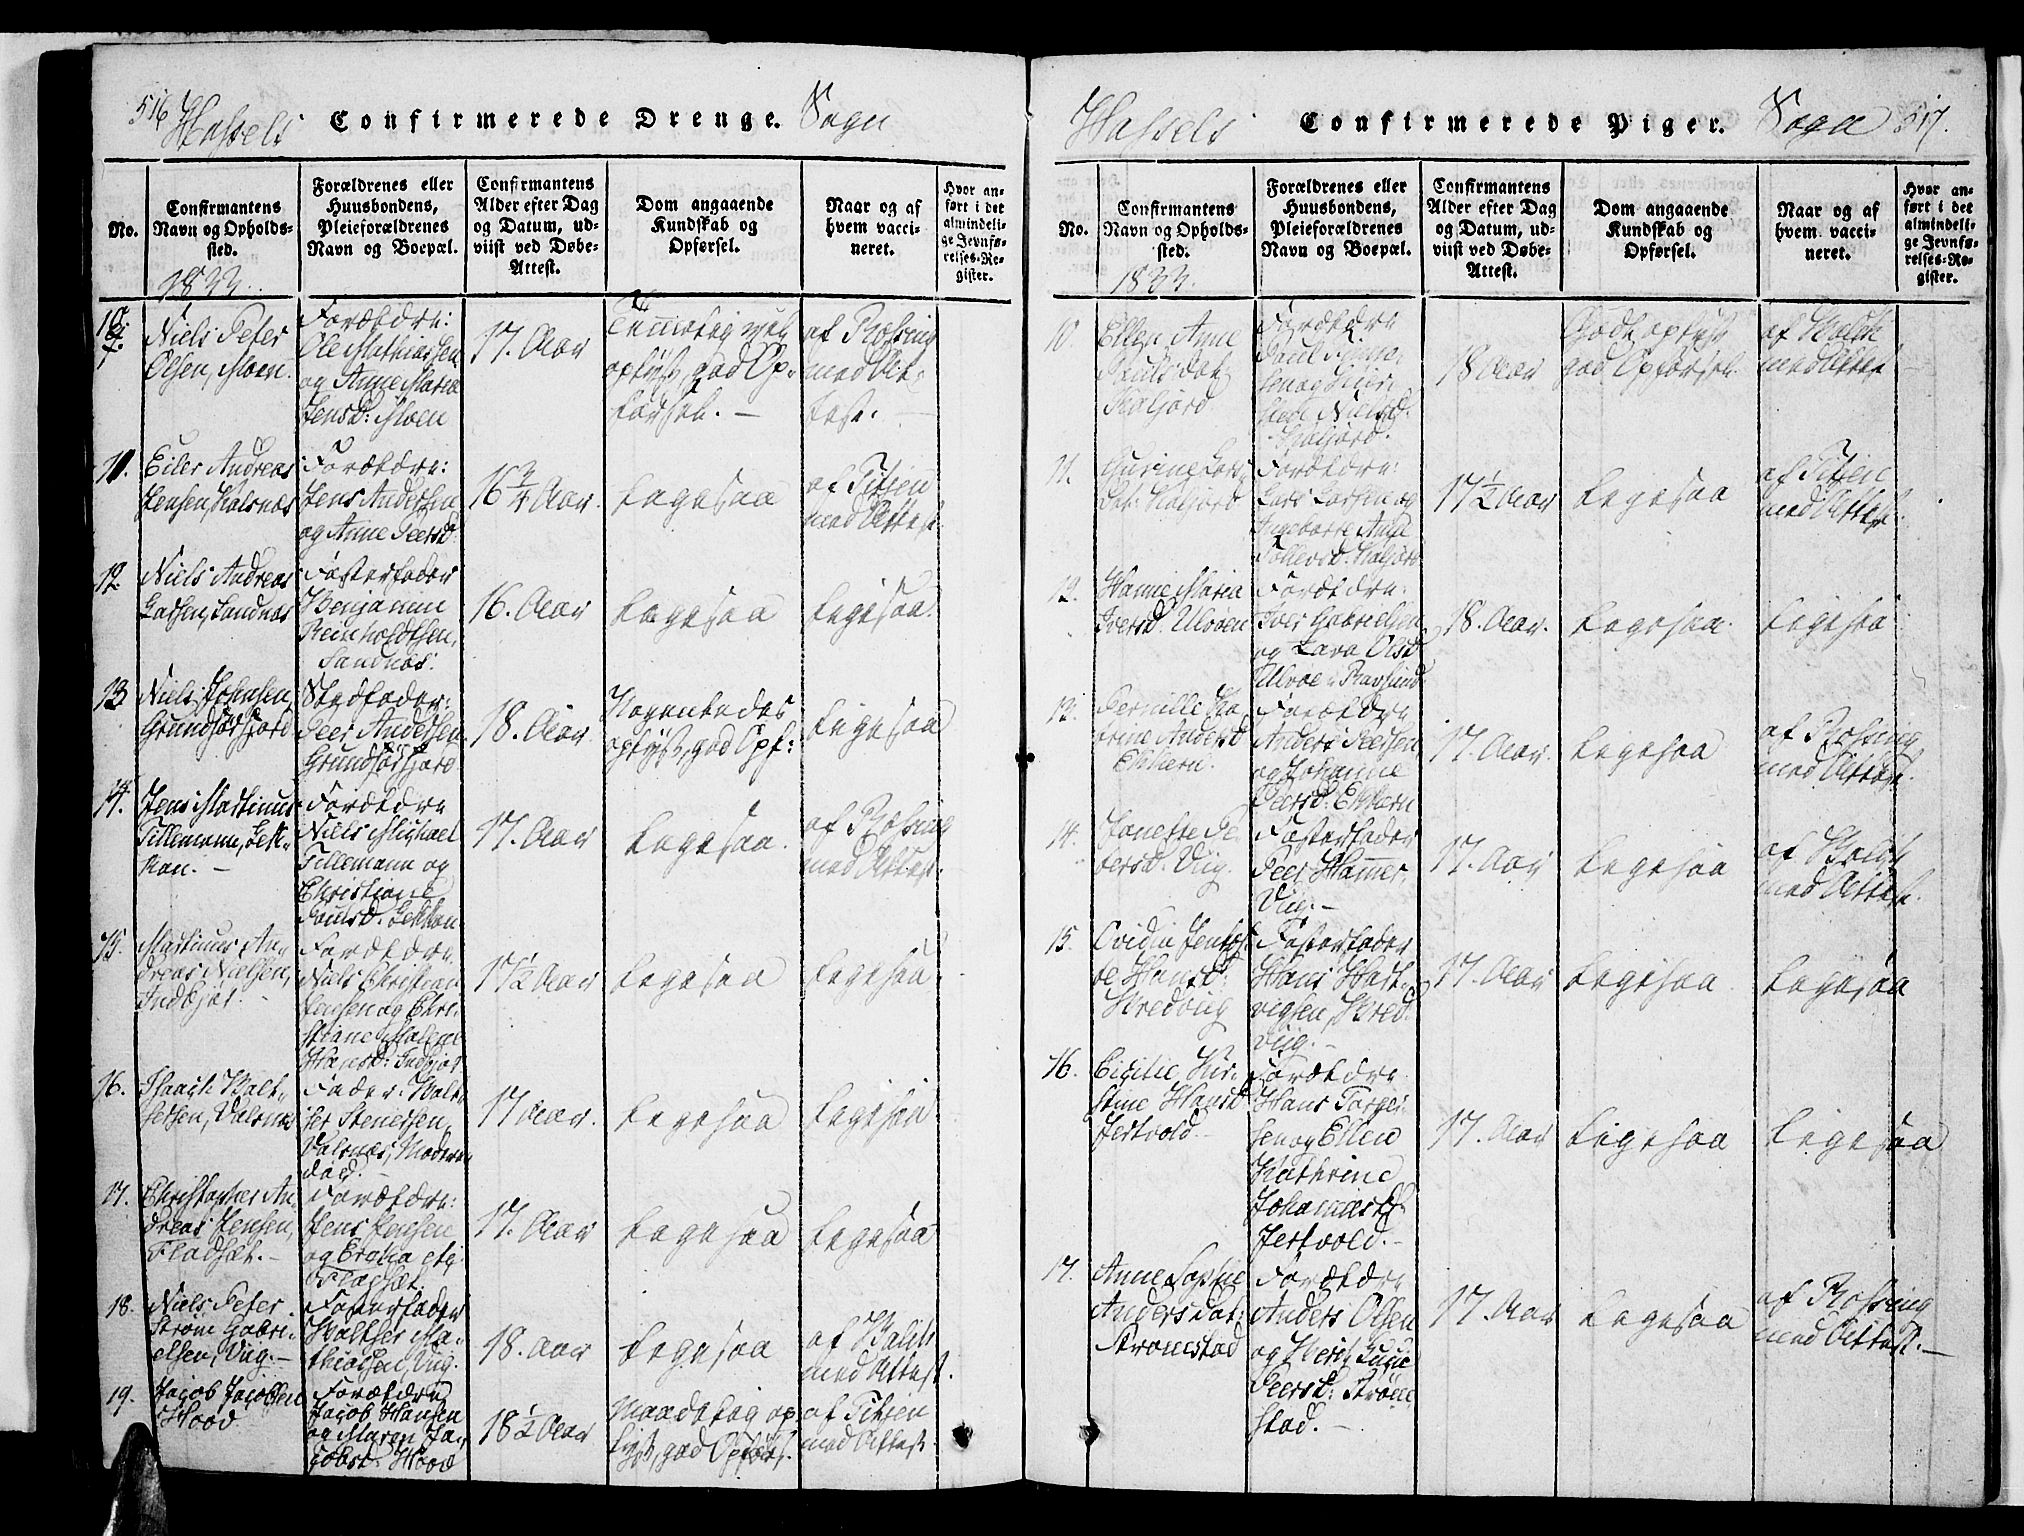 516 Hassels Confirmerede Drenge. Sogn
No.
Confirmantens
Navn og Opholds-
sted.
1833.
Forældrenes eller
Huusbondens,
Pleieforældrenes
Navn og Boepæl.
Confirmantens
Alder efter Dag
og Datum, ud-
viist ved Døbe-
Attest.
Dom angaaende
Kundskab og
Opførsel.
Naar og af
hvem vacci-
neret.
Hvor an-
ført i det
almindeli-
ge Jevnfø-
relses-Re-
gister.
Niels Peter
Olsen, Moen.
Forældre:
Ole Mathiassen
og Anne Maria
Jensd: Moen
17. Aar
Temmelig vel
oplyst, god Op-
førsel. —
af Rossing
med At-
test. —
11.
Eiler Andreas
Jensen, Kalsnes
Forældre:
Jens Andersen
og Anne Peersd
16 3/4 Aar.
Ligesaa
af Titsen
med Attest.
12.
Niels Andreas
Larsen, Sandnes
Fosterfader
Benjamin
Reinholdtsen,
Sandnes:
16. Aar
Ligesaa
Ligesaa.
13
Niels Johnsen,
Grundførfjord
Stedfader:
Peer Andersen
Grundførfjord
18. Aar.
Nogenledes
oplyst, god Opf:
Ligesaa
14.
Jens Martinus
Tillemann, Lek-
kan. —
Forældre
Niels Michael
Tillemann og
Christiane
Poulsd. Lekkan
17. Aar
Ligesaa.
af Rossing
med Attest.
15.
Martinus An-
dreas Nielsen,
Indbjør. —
Forældre
Niels Christian
Jensen og Chri-
stiane Malene
Hansd: Indbjør
17 1/2 Aar
Ligesaa
Ligesaa
16.
Isaach Walt-
sersen, Valsnes
Fader: Walt-
ser Stenersen,
Valsnes, Moderen
død.
17 Aar.
Ligesaa
Ligesaa
17.
Christopher An-
dreas Jensen,
Fladsæt. —
Forældre:
Jens Jensen
Fladsæt.
17. Aar
Ligesaa
Ligesaa
18.
Niels Peter
Strøm Gabri-
elsen, Viig. —
Fosterfader
Walthser Ma-
thiassen, Viig.
18. Aar
Ligesaa
med Attest.
19.
Jacob Jacobsen
Hood
Forældre
Jacob Hansen
og Maren Ja-
cobsd: Hood
18 1/2 Aar
Maadelig op-
lyst, god Opførs.
af Titsen
med Attest.
Hassels Confirmerede Piger. Sogn 517.
No.
Confirmantens
Navn og Opholds-
sted.
1833.
Forældrenes eller
Huusbondens,
Pleieforældrenes
Navn og Boepæl.
Confirmantens
Alder efter Dag
og Datum, ud-
viist ved Døbe-
Attest.
Dom angaaende
Kundskab og
Opførsel.
Naar og af
hvem vacci-
neret.
Hvor an-
ført i det
almindeli-
ge Jevnfø-
relses-Re-
gister.
10.
Ellen Anne
Paulsdat:
Kaljord
Forældre
Nielsd.
Kaljord.
18 Aar
Godt oplyst
god Opførsel.
med Attest
11.
Gurine Lars-
dat: Kaljord
Forældre:
Lars Larsen og
Ingeborre Anne
Tollevsd. Kaljord
17 1/2 Aar
Ligesaa
af Titsen
med Attest.
12.
Hanne Maria
Iversd. Ulvøen
Forældre:
Iver Gabrielsen
og Lava Olsd
Ulvøe i Raftsund
18. Aar.
Ligesaa.
Ligesaa
13.
Pernille Ka-
trine Andersd
Ekkern.
Forældre
Anders Peersen
og Johanne
Peersd: Ekkern
17. Aar.
Ligesaa
af Rossing
med Attest.
14.
Janette Pe-
tersd. Viig.
Fosterfader
Peer Hammer,
Viig. —
17. Aar
Ligesaa
med Attest.
15.
Ovidia Jentof-
te Hansd:
Kredviig
Fosterfader
Hans Hart-
vigsen, Kred-
viig. —
17. Aar
Ligesaa.
Ligesaa
16.
Cicilie Kir-
stine Hansd
Jertvold. —
Forældre
Hans Torger-
sen og Ellen
Kathrine
Johannesd
Jertvold. —
17. Aar
Ligesaa
Ligesaa
17.
Anne Sophie
Andersdat:
Strømstad
Forældre
Anders Olsen
Peersd: Strøm-
stad. —
17. Aar
Ligesaa
af Rossing
med Attest. —